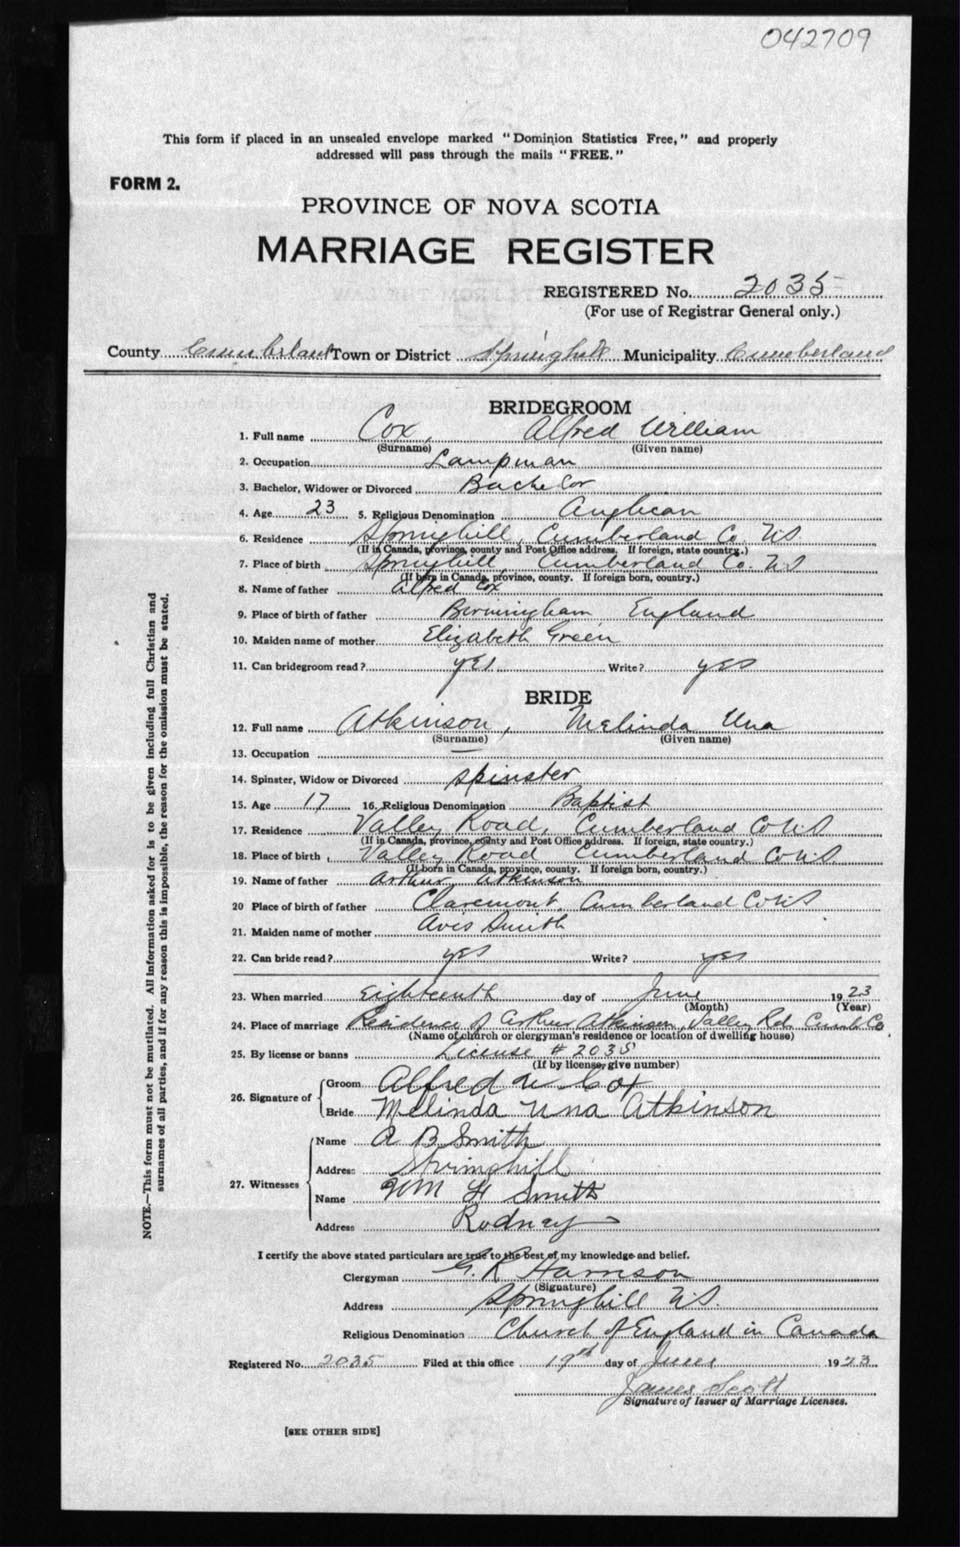 042709
This form if placed in an unsealed envelope marked "Dominion Statistics Free," and properly
addressed will pass through the mails "FREE."
FORM 2.
PROVINCE OF NOVA SCOTIA
MARRIAGE REGISTER
REGISTERED No. 2035
(For use of Registrar General only.)
County Cumberland Town or District Springhill Municipality Cumberland
BRIDEGROOM
1. Full name Cox, Alfred William
(Surname) (Given name)
2. Occupation Lampman
3. Bachelor, Widower or Divorced Bachelor
4. Age 23 5. Religious Denomination Anglican
6. Residence Springhill, Cumberland Co. N.S
(If in Canada, province, county and Post Office address. If foreign, state country.)
7. Place of birth Springhill Cumberland Co. N.S
(If born in Canada, province, county. If foreign born, country.)
8. Name of father Alfred Cox
9. Place of birth of father Birmingham England
10. Maiden name of mother Elizabeth Green
11. Can bridegroom read? yes Write? yes
BRIDE
12. Full name Atkinson, Melinda Una
(Surname) (Given name)
13. Occupation —
14. Spinster, Widow or Divorced spinster
15. Age 17 16. Religious Denomination Baptist
17. Residence Valley Road, Cumberland Co N S
(If in Canada, province, county and Post Office address. If foreign, state country.)
18. Place of birth Valley Road Cumberland Co N S
(If born in Canada, province, county. If foreign born, country.)
19. Name of father Arthur Atkinson
20 Place of birth of father Claremont, Cumberland Co N S
21. Maiden name of mother Avis Smith
22. Can bride read? yes Write? yes
23. When married Eighteenth day of June 1923
(Month) (Year)
24. Place of marriage Residence of Arthur Atkinson, Valley Rd. Cumb. Co.
(Name of church or clergyman's residence or location of dwelling house)
25. By license or banns License # 2035
(If by license, give number)
26. Signature of Groom Alfred W Cox
Bride Melinda Una Atkinson
27. Witnesses Name A B Smith
Address Springhill
Name Wm H Smith
Address Rodney
I certify the above stated particulars are true to the best of my knowledge and belief.
Clergyman G. R Harrison
(Signature)
Address Springhill N.S.
Religious Denomination Church of England in Canada
Registered No. 2035 Filed at this office 19th day of June 1923
James Scott
Signature of Issuer of Marriage Licenses.
[SEE OTHER SIDE]
NOTE.—This form must not be mutilated. All information asked for is to be given including full Christian and
surnames of all parties, and if for any reason this is impossible, the reason for the omission must be stated.